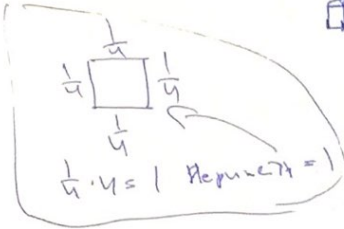 1/4
1/4 1/4
1/4
1/4 · 4 = 1 Периметр = 1